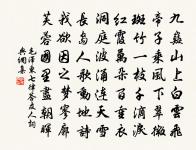 九嶷山上白雲飛
帝子乘風下翠微
斑竹一枝千滴淚
紅霞萬朵百重衣
洞庭波涌連天雪
長島人歌動地詩
我欲因之夢寥廓
芙蓉國里盡朝暉
毛澤東七律答友人詞